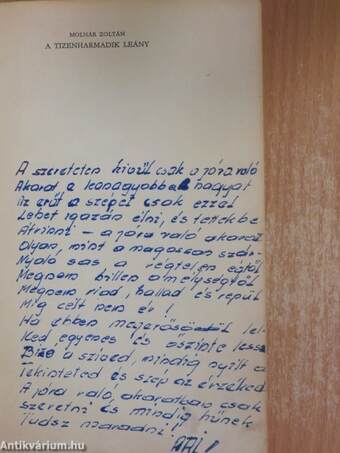 MOLNÁR ZOLTÁN
A TIZENHARMADIK LEÁNY
A szereteten kivül csak a jóra való
Akarat, a
űz erőt a szépet csak ezzel
Lehet igazán élni, és tettekbe
Átvinni – a jóra való akarat
Olyan, mint a magasan szár-
Nyaló sas a végtelen égtől
Megnem a mélységtől
Megnem riad, hallad és repül
Mig célt nem ér!
Ha ebben megerősödül lel-
ked egyenes és őszinte lessz
a szived, mindig nyilt a
tekinteted és szép az érzéked
A jóra való akaratban csak
szeretni és mindig hűnek
Tudsz maradni!
Antikvárium.hu